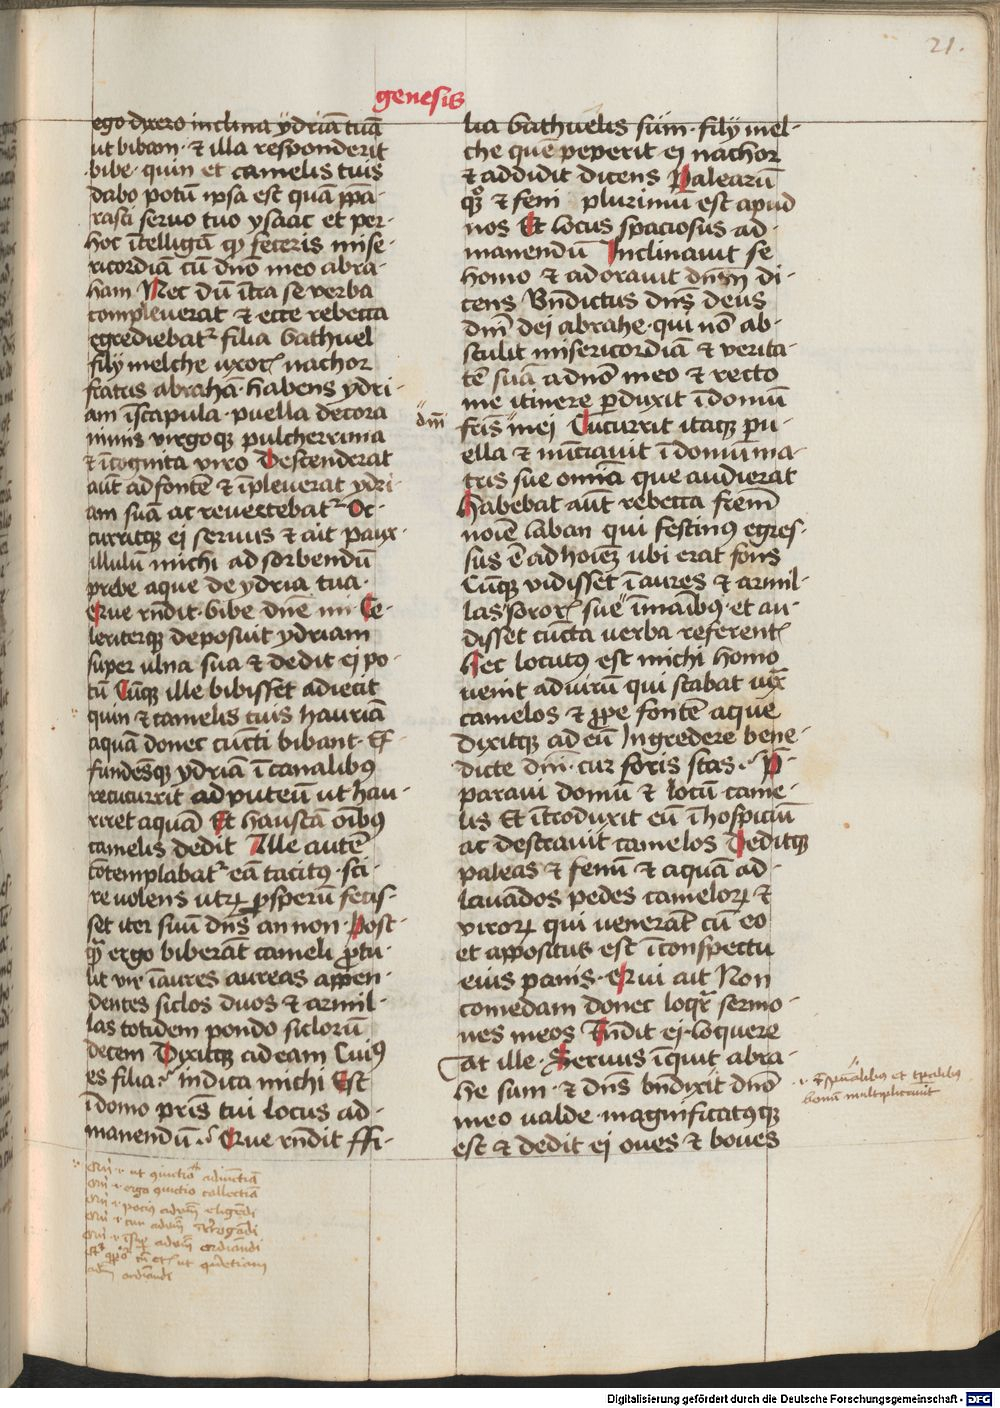 21.
genesis
ego dixero inclina ydriã tuã
ut bibam · et illa responderit
bibe · quin et camelis tuis
dabo potũ ipsa est quam ppa-
rasti seruo tuo ysaac et per-
hoc ĩtelligã qͥ feceris mise-
ricordiã cũ dño meo abra-
ham Nec dũ ĩtra se verba
compleuerat et ecce rebecca
egrediebat᷑ filia bathuel
filij melche uxor nachor
fratris abrahã · habens ydri-
am ĩscapula · puella decora
nimis virgoqꝫ pulcherrima
et ĩcognita viro Descenderat
aũt ad fontẽ et ĩpleuerat ydri-
am suã ac reuertebat᷑ Oc-
curritqꝫ ei seruus et ait paux-
illulũ michi ad sorbendũ
prebe aque de ydria tua ·
Que rñdit · bibe dñe mi · Ce-
leriterqꝫ deposuit ydriam
super ulna sua et dedit ei po-
tũ Cũqꝫ ille bibisset adiecit
quin et camelis tuis hauriã
aquã donec cũcti bibant · Ef-
fundẽsqꝫ ydriã ĩ canalibꝰ
recucurrit ad puteũ ut hau-
riret aquã Et haustã oĩbꝰ
camelis dedit Ille autẽ
cõtemplabat᷑ eã tacitꝰ · sci-
re volens utrꝫ ꝓsperũ fecis-
set iter suũ dñs an non · Post-
qͣ ergo biberãt cameli ꝓtu-
lit vir ĩaures aureas appen-
dentes siclos duos et armil-
las totidem pondo siclorũ
decem Dixitqꝫ ad eam Cuiꝰ
es filia · indica michi Est
ĩ domo pris tui locus ad-
manendũ · Que rñdit ffi-
lia bathuelis sum · filij mel-
che quẽ peperit ei nachor
et addidit dicens Palearũ
qꝫ et feni plurimũ est apud
nos Et locus spaciosus ad-
manendũ Inclinauit se
homo et adorauit dñm di-
cens Bñdictus dñs deus
dñi dei abrahe · qui nõ ab-
stulit misericordiã et verita-
tẽ suã a dño meo et recto
me itinere ꝑduxit ĩ domũ
fris mei Cucurrit itaqꝫ pu-
dñi
ella et nũciauit ĩ domum ma-
tris sue omnia que audierat
Habebat aũt rebecca frẽm
noĩe laban qui festinꝰ egres-
sus ẽ ad hoĩẽ ubi erat fons
Cũqꝫ vidisset ĩaures et armil-
las soror sue ĩ manibꝰ · et au-
disset cũcta uerba referent
Hec locutꝰ est michi homo
uenit ad uirũ qui stabat iux
camelos et ꝓpe fontẽ aque
dixitqꝫ ad eũ Ingredere bene-
dicte dñi · cur foris stas · P-
paraui domũ et locũ came-
lis Et ĩtroduxit eũ ĩ hospiciũ
ac destrauit camelos Deditqꝫ
paleas et fenũ et aquã ad-
lauãdos pedes cameloꝝ et
viroꝝ qui uenerãt cũ eo
et appositus est ĩ conspectu
eius panis · Qui ait Non
comedam donec loqr sermo-
nes meos Rñdit ei · loquere
at ille · Seruus ĩquit abra-
he sum · et dñs bñdixit dño
meo ualde · magnificatꝰqꝫ
est et dedit ei oues et boues
et tp̃alibus
bonũ multiplicauit
Digitalisierung gefördert durch die Deutsche Forschungsgemeinschaft - DFG